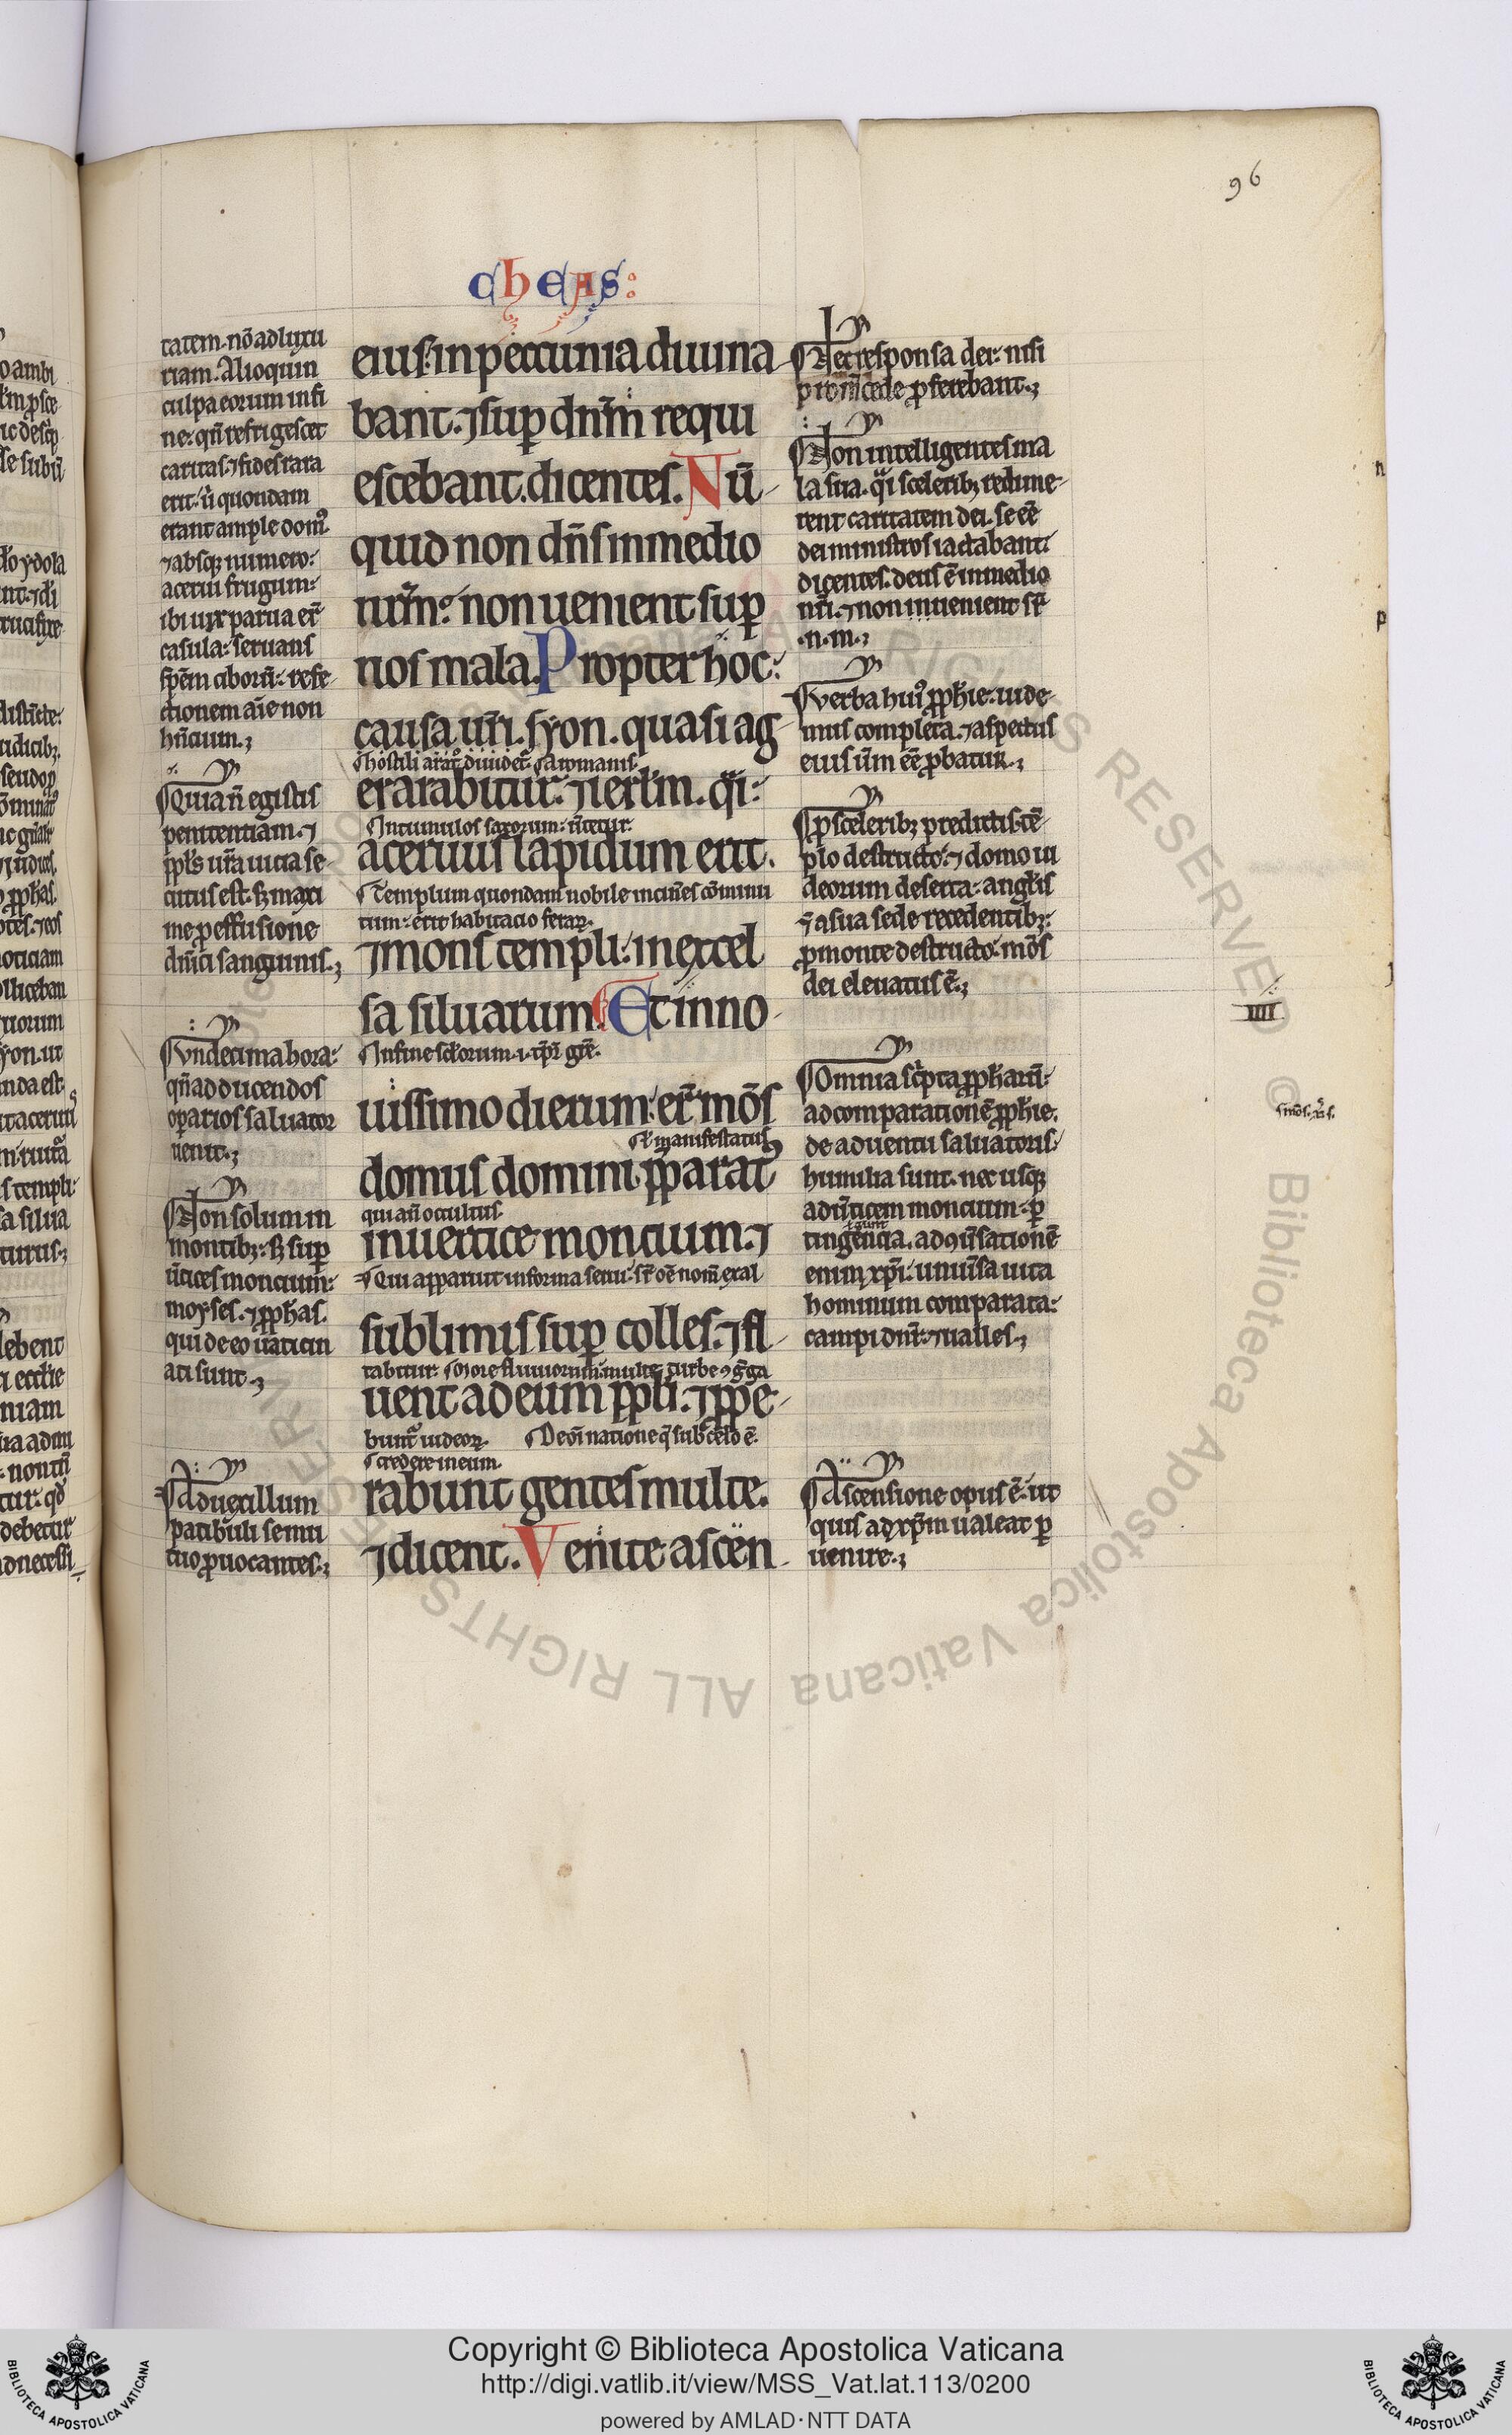 96
cheas:
tatem. nō ad luxu
riam. Alioquin
culpa eorum insi
ne: qn̄ refrigescet
caritas. ⁊ fides rara
erit: ū quondam
erant ample dom᷒
⁊ absq; numero:
acerui frugum:
ibi uix parua er̄
casula: seruans
spēm ciborū: refe
ctionem aīe non
hn̄cium.;
Quia n̄ egistis
penitentiam. ⁊
ppl̄s ur̄a uicia se
cutus est. sʒ maxi
me ꝓ effusione
dn̄ici sanguinis.;
Vndecima hora:
qn̄ ad ducendos
oꝑarios saluator
uenit.;
Non solum in
montibʒ: sʒ suꝑ
ūtices moncium:
moyses. ⁊ ꝓph̄as.
qui de eo uaticin
ati sunt.;
Ad uexillum
patibuli se mu
tuo ꝓuocantes.;
eius: in peccunia diuina
bant. ⁊ suꝑ dn̄m requi
escebant. dicentes. Nū
quid non dn̄s in medio
nr̄m: non uenient suꝑ
nos mala. Propter hoc:
causa ur̄i. syon. quasi ag
hostili aratº diuidet᷑ a romanis.
er arabitur. ⁊ ierl̄m. q̄i:
In tumulos saxorum: ūtetur.
aceruus lapidum erit.
Templum quondam nobile in cin̄es cōminu
tum: erit habitacio feraꝝ.
⁊ mons templi: in excel
sa siluarum. Et in no
In fine sc̄lorum .i. tp̄r̄ gr̄e.
uissimo dierum: er̄ mōs
.i. manifestatus
domus domini p̄parat᷒
qui an̄ occultus.
in uertice moncium. ⁊
Qui apparuit in forma serui. sr̄ oē nom̄ exal
sublimis suꝑ colles. ⁊ fl
tabitur. More fluuiorum: multe turbe ꝯḡga
uent ad eum ppl̄i. ⁊ ꝓpe
buntᷣ iudeoꝝ. De oī natione q̄ sub celo ē.
credere in eum.
rabunt gentes multe.
⁊ dicent. Venite ascen
Nec responsa dei: nisi
pro m̄cede ꝓferebant.;
Non intelligentes ma
la sua. q̄i sceleribʒ redime
rent caritatem dei. se eē
dei ministros iactabant.
dicentes. deus ē in medio
nr̄i. ⁊ non inuenient sr̄
.n. m.;
Verba hui᷒ ꝓph̄ie: uide
mus completa. ⁊ aspectus
eius ūm eē ꝓbatur.;
P̱ sceleribʒ predictis. tē
plo destructo: ⁊ domo iu
deorum deserta: angl̄is
⁊ a sua sede recedentibʒ:
ꝓ monte destructo. mōs
dei eleuatus ē.;
Omnia sc̄pta ꝓph̄arū:
ad comparationē ꝓph̄ie.
de aduentu saluatoris:
humilia sunt. nec usqʒ
ad ūticem moncium: ꝑ
tingencia. ad ꝯūsationē
enim xp̄i: uniūsa uita
hominum comparata:
campi dn̄r: ⁊ ualles.;
Ascensione opus ē: ut
quis ad xp̄m ualeat ꝑ
uenire.;
IIII
Copyright © Biblioteca Apostolica Vaticana
http://digi.vatlib.it/view/MSS_Vat.lat.113/0200
powered by AMLAD·NTT DATA
BIBLIOTECA APOSTOLICA VATICANA
BIBLIOTECA APOSTOLICA VATICANA